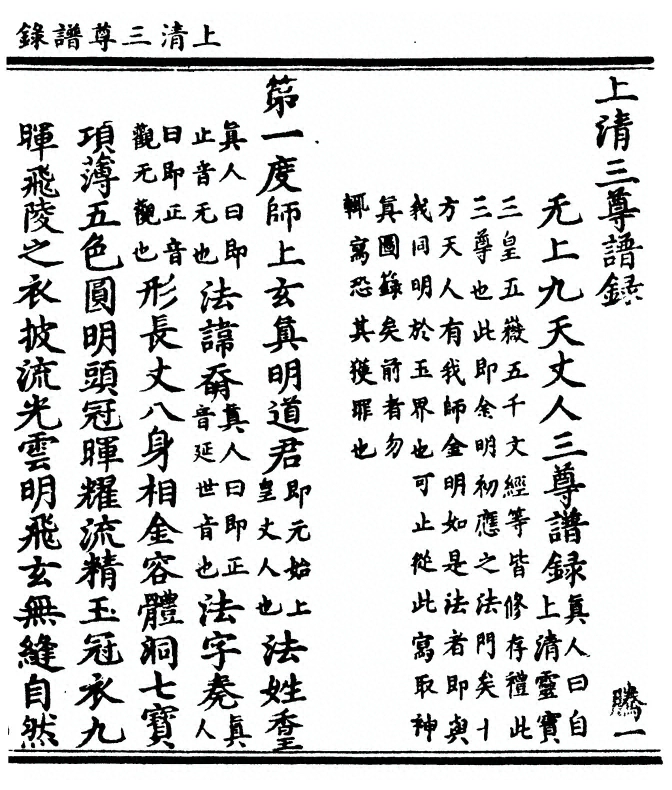 上清三尊譜錄
上清三尊譜録
騰一
无上九天丈人三尊譜録真人曰自上清靈寶
三皇五嶽五千文經等皆修存禮此
三尊也此即金明初應之法門矣十
方天人有我師金明如是法者即與
我同明於玉界也可止從此寫取神
真圖籙矣前者勿
輒寫恐其獲罪也
第一度師上玄真明道君即元始上皇丈人也法姓
真人曰即止音无也法諱真人曰即正音延世音也法字真人
曰即正音觀无觀也形長丈八身相金容體洞七寶
項薄五色圓明頭冠暉耀流精玉冠衣九
暉飛陵之衣披流光雲明飛玄無縫自然